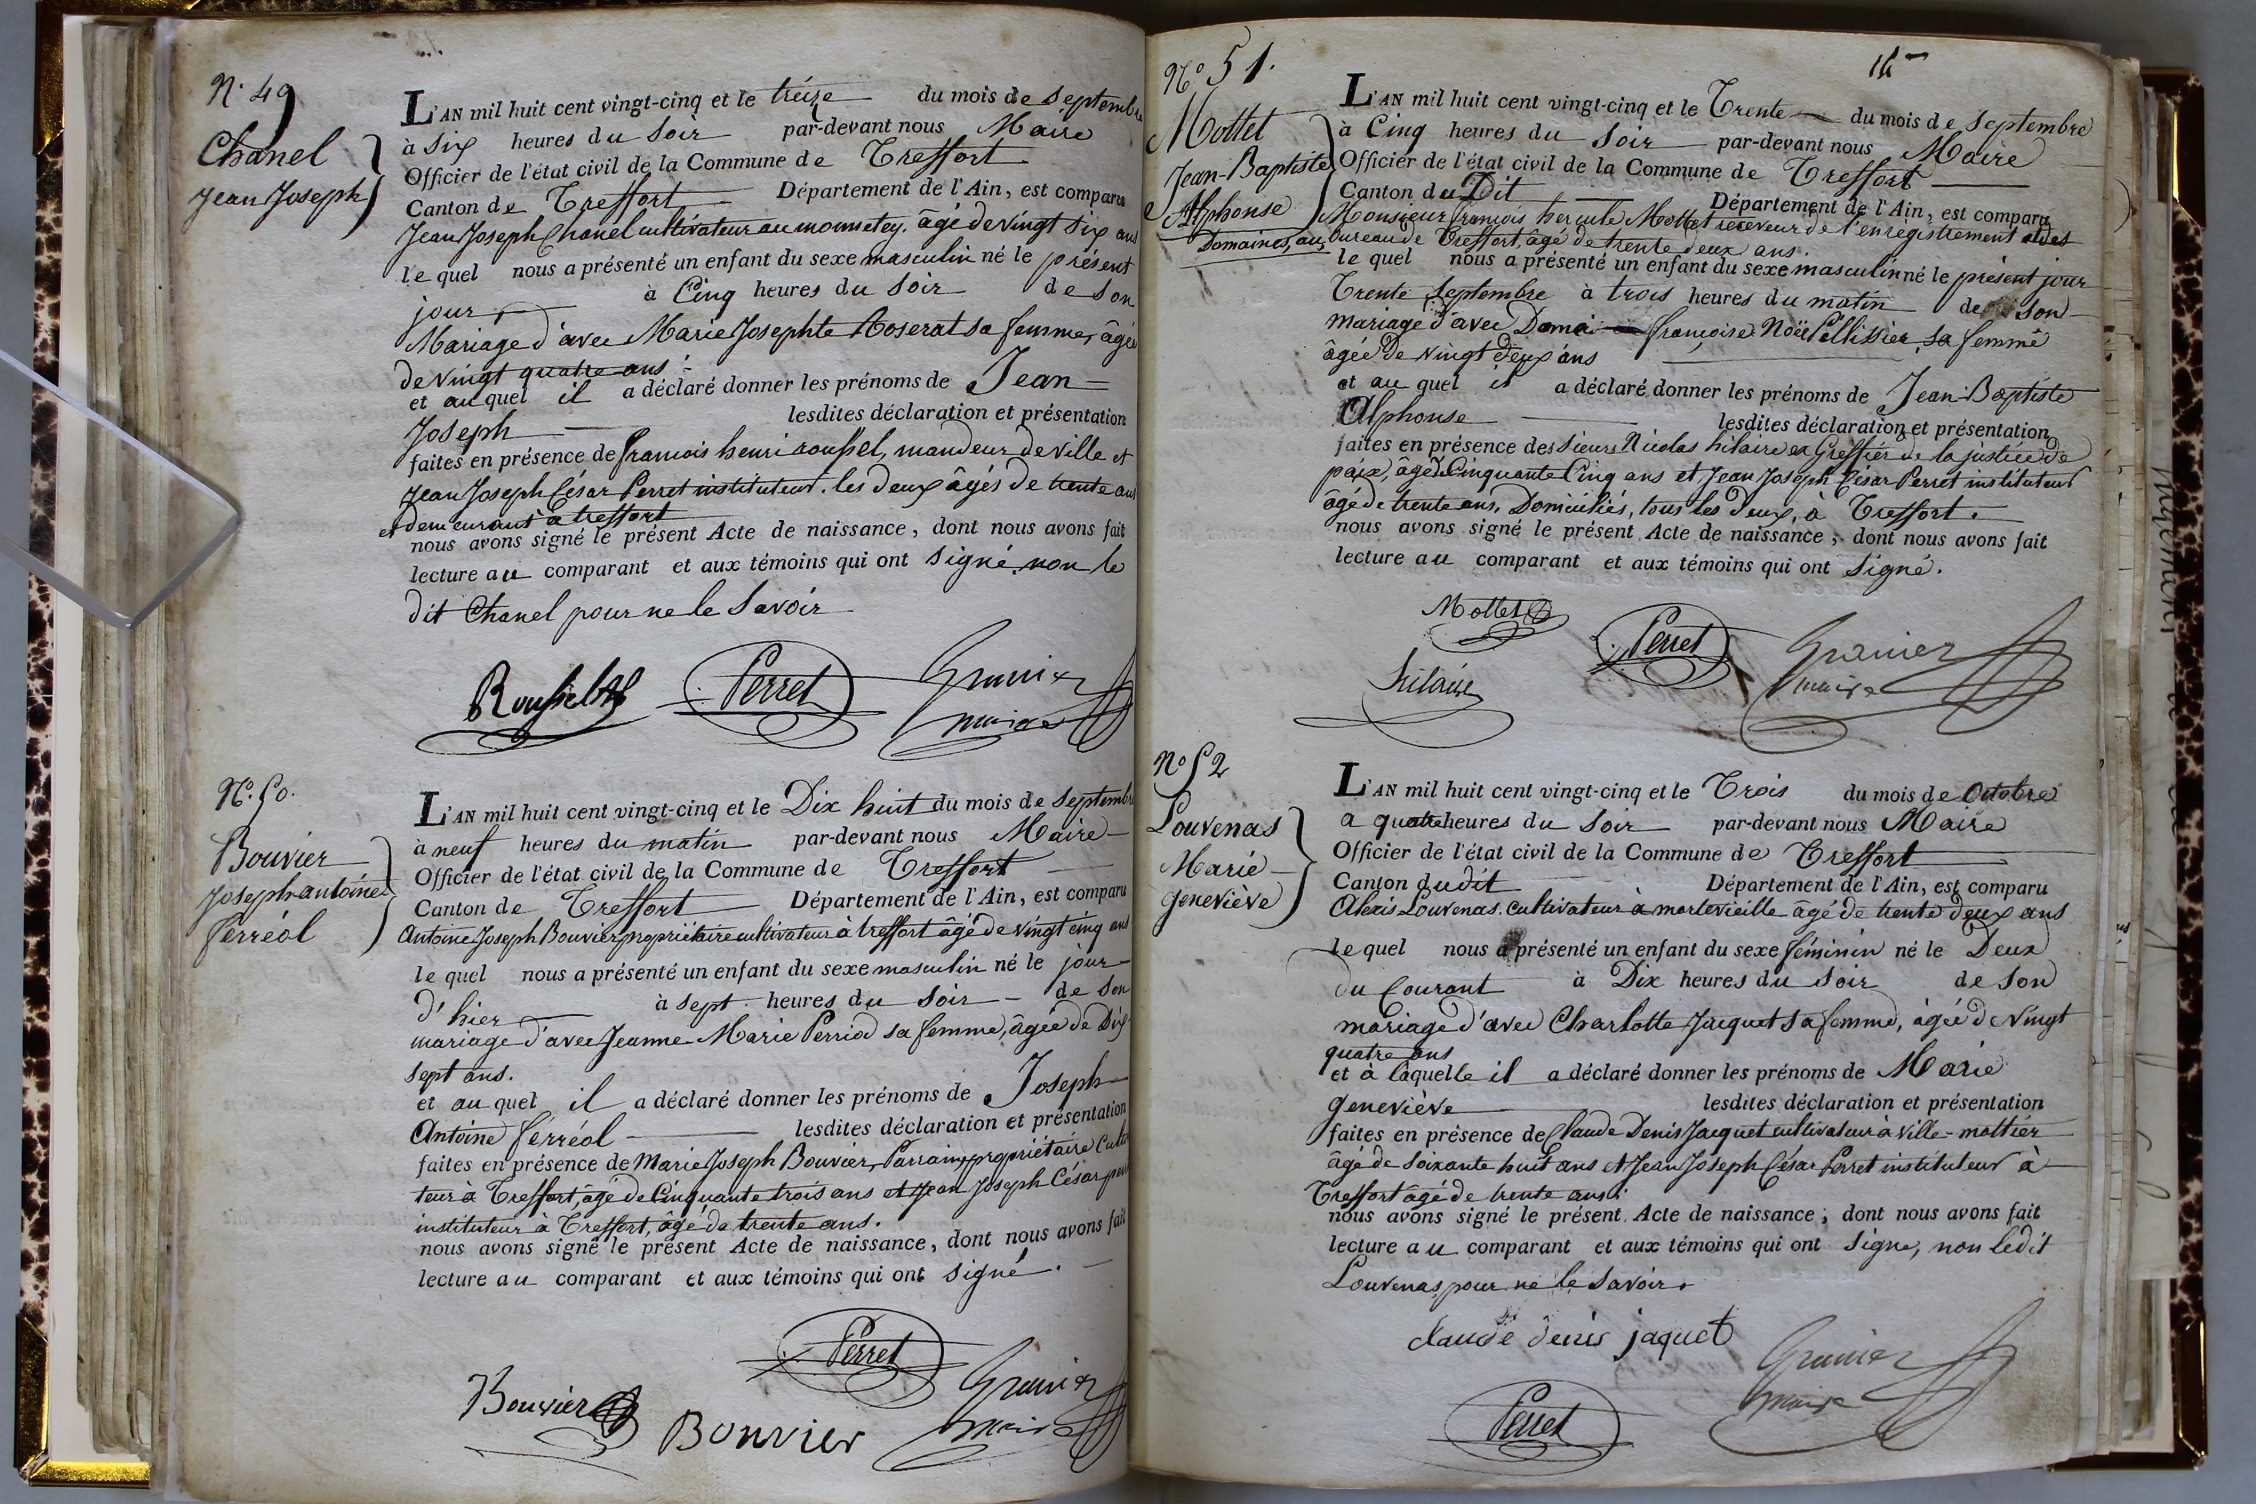 N.° 49
Chanel
Jean Joseph
L'AN mil huit cent vingt-cinq et le treize du mois de septembre
à six heures du soir par-devant nous Maire
Officier de l'état civil de la Commune de Treffort
Canton de Treffort Département de l'Ain, est comparu
Jean Joseph Chanel cultivateur au monnetey, âgé de vingt six ans
le quel nous a présenté un enfant du sexe masculin né le présent
jour, à Cinq heures du soir de son
Mariage d'avec Marie Josephte Roserat sa femme, âgée
de vingt quatre ans
et au quel il a déclaré donner les prénoms de Jean
Joseph lesdites déclaration et présentation
faites en présence de françois henri roussel, mandeur de ville et
Jean Joseph César Perret instituteur. les deux âgés de trente ans
et demeurant à treffort
nous avons signé le présent Acte de naissance, dont nous avons fait
lecture au comparant et aux témoins qui ont signé, non le
dit Chanel pour ne le savoir
Roussel Perret Granier
maire
N.° 50.
Bouvier
Joseph antoine
ferréol
L'AN mil huit cent vingt-cinq et le Dix huit du mois de septembre
à neuf heures du matin par-devant nous Maire
Officier de l'état civil de la Commune de Treffort
Canton de Treffort Département de l'Ain, est comparu
Antoine Joseph Bouvier propriétaire cultivateur à treffort âgé de vingt cinq ans
le quel nous a présenté un enfant du sexe masculin né le jour
d'hier à sept heures du soir de son
mariage d'avec Jeanne Marie Perriod sa femme, âgée de Dix
sept ans.
et au quel il a déclaré donner les prénoms de Joseph
Antoine ferréol lesdites déclaration et présentation
faites en présence de Marie Joseph Bouvier, Parrain, propriétaire Culti
teur à Treffort, âgé de Cinquante trois ans et Jean Joseph César
instituteur à Treffort, âgé de trente ans.
nous avons signé le présent Acte de naissance, dont nous avons fait
lecture au comparant et aux témoins qui ont signé.
Perret
Bouvier Bouvier Granier
maire
N.° 51.
Mottet
Jean-Baptiste
Alphonse
L'AN mil huit cent vingt-cinq et le Trente du mois de septembre
à Cinq heures du soir par-devant nous Maire
Officier de l'état civil de la Commune de Treffort
Canton du Dit Département de l'Ain, est comparu
Monsieur françois hercule Mottet receveur de l'enregistrement et des
Domaines, au bureau de Treffort, âgé de trente deux ans.
le quel nous a présenté un enfant du sexe masculin né le présent jour
Trente septembre à trois heures du matin de son
mariage d'avec françoise Noël Pellissier, sa femme
âgée de vingt deux ans
et au quel il a déclaré donner les prénoms de Jean-Baptiste
Alphonse lesdites déclaration et présentation
faites en présence des sieurs Nicolas hilaire Greffier de la justice de
paix, âgé de Cinquante Cinq ans et Jean Joseph César Perret instituteur
âgé de trente ans, Domiciliés, tous les deux, à Treffort.
nous avons signé le présent Acte de naissance, dont nous avons fait
lecture au comparant et aux témoins qui ont signé.
Mottet Perret Granier
hilaire maire
N.° 52
Louvenas
Marie
geneviève
L'AN mil huit cent vingt-cinq et le Trois du mois de Octobre
à quatre heures du soir par-devant nous Maire
Officier de l'état civil de la Commune de Treffort
Canton dudit Département de l'Ain, est comparu
Alexis Louvenas. cultivateur à mortevieille âgé de trente deux ans
le quel nous a présenté un enfant du sexe féminin né le Deux
du Courant à Dix heures du soir de son
mariage d'avec Charlotte Jacquet sa femme, âgée de vingt
quatre ans
et à laquelle il a déclaré donner les prénoms de Marie
geneviève lesdites déclaration et présentation
faites en présence de Claude Denis Jacquet cultivateur à ville-mottier
âgé de soixante huit ans et Jean Joseph César Perret instituteur à
Treffort âgé de trente ans.
nous avons signé le présent Acte de naissance, dont nous avons fait
lecture au comparant et aux témoins qui ont signé, non ledit
Louvenas, pour ne le savoir.
claude denis jaquet Granier
maire
Perret